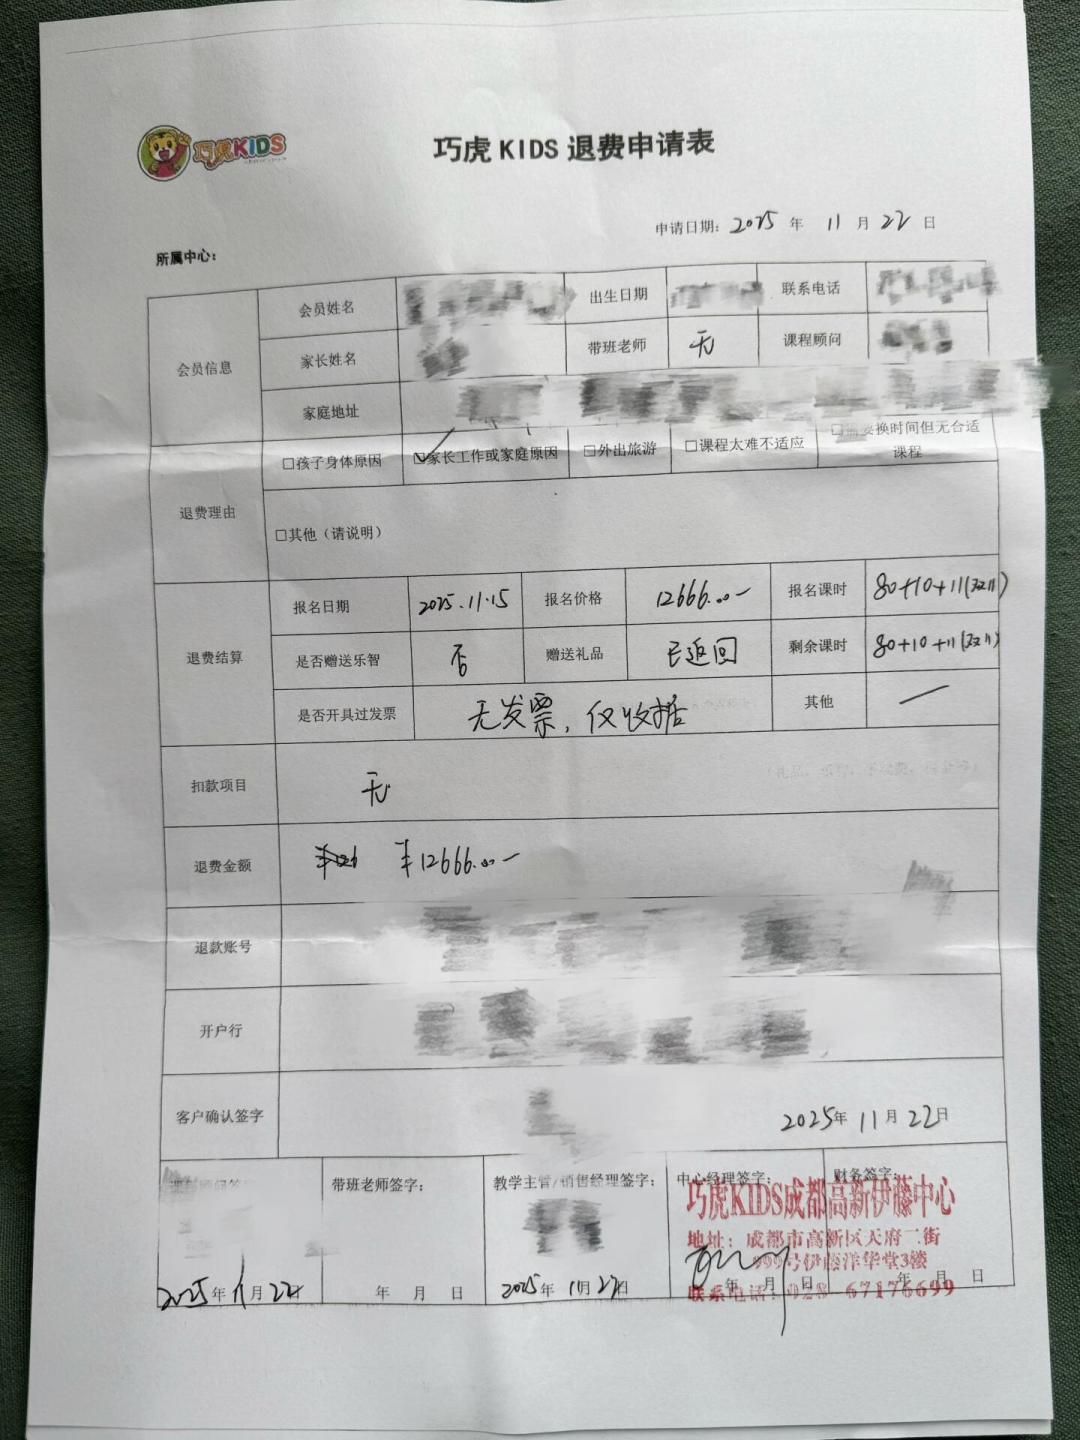 巧虎KIDS
巧虎 KIDS 退费申请表
申请日期: 2025 年 11 月 22 日
所属中心:
会员信息
会员姓名
出生日期
联系电话
家长姓名
带班老师 无
课程顾问
家庭地址
退费理由
□孩子身体原因
☑家长工作或家庭原因
□外出旅游
□课程太难不适应
换时间但无合适课程
□其他（请说明）
退费结算
报名日期 2025.11.15
报名价格 12666.00
报名课时 80+10+11(双11)
是否赠送乐智 否
赠送礼品 已返回
剩余课时 80+10+11(双11)
是否开具过发票 无发票，仅收据
其他 —
扣款项目 无
退费金额 ¥12666.00
退款账号
开户行
客户确认签字 2025年 11月 22日
带班老师签字:
教学主管/销售经理签字:
中心经理签字:
财务签字:
巧虎KIDS成都高新伊藤中心
地址: 成都市高新区天府二街
999号伊藤洋华堂3楼
联系电话: 028-67176699
2025年 11月 22
年 月 日
2025年 11月 22日
年 月 日
年 月 日